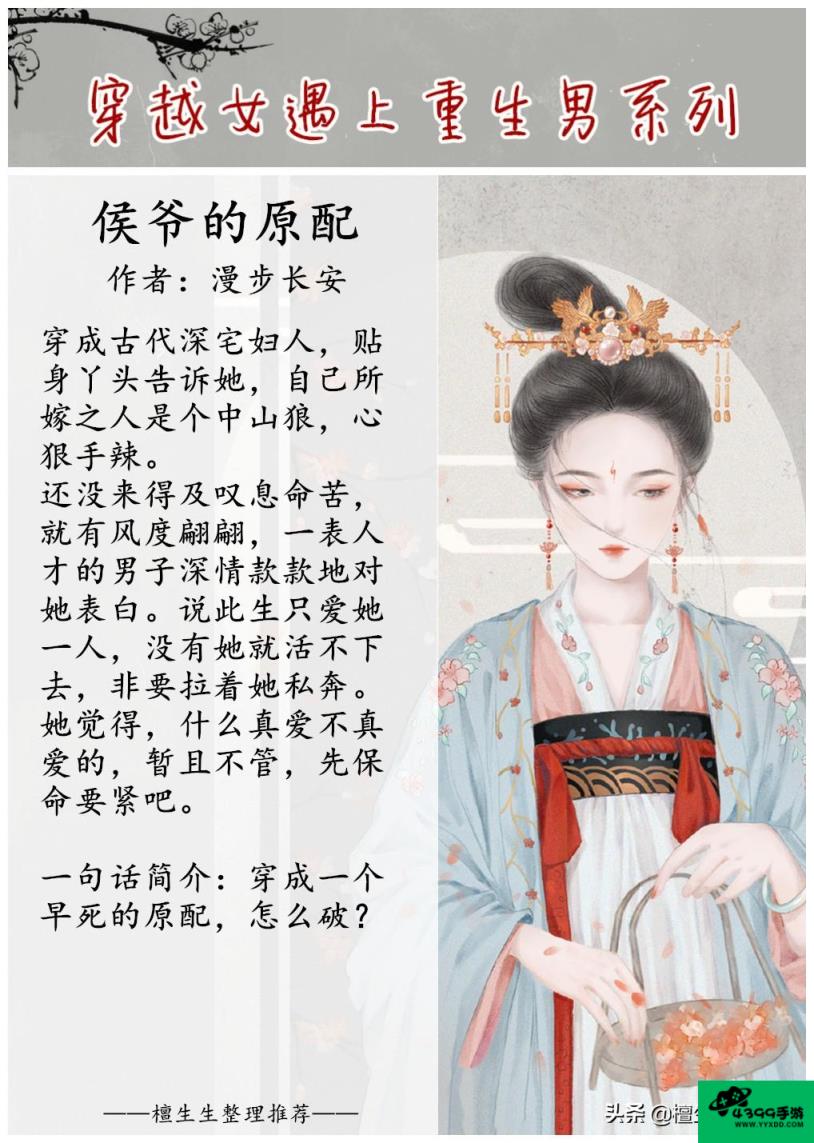 穿越女遇上重生男系列
侯爷的原配
作者：漫步长安
穿成古代深宅妇人，贴
身丫头告诉她，自己所
嫁之人是个中山狼，心
狠手辣。
还没来得及叹息命苦，
就有风度翩翩，一表人
才的男子深情款款地对
她表白。说此生只爱她
一人，没有她就活不下
去，非要拉着她私奔。
她觉得，什么真爱不真
爱的，暂且不管，先保
命要紧吧。
一句话简介：穿成一个
早死的原配，怎么破？
——檀生生整理推荐——
头条 @檀生
4399手游
WWW.YYXDD.COM